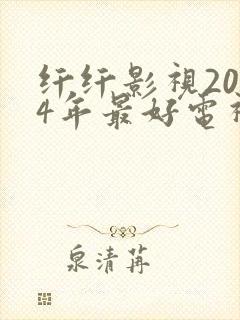 纤纤影視20
4年最好電視
泉清苒